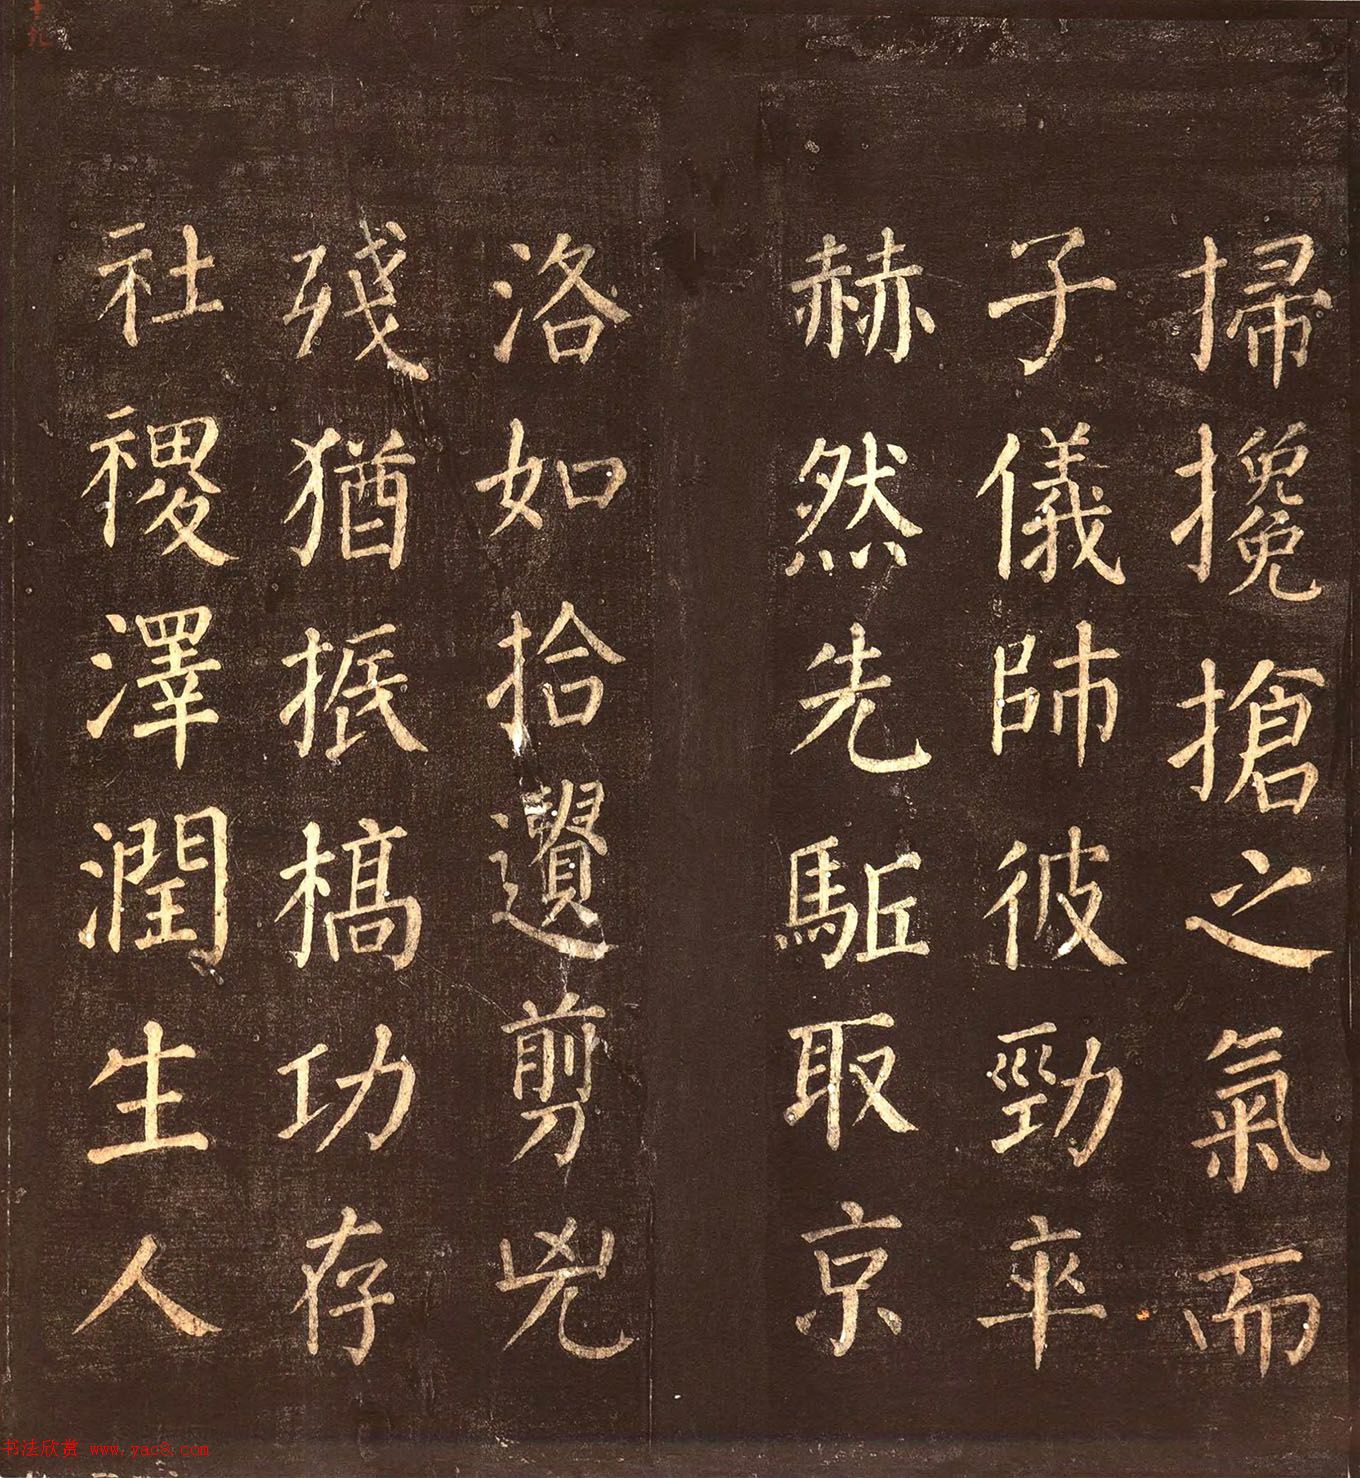 掃攙搶之氣而
子儀師彼勁卒
赫然先駈取京
洛如拾遺剪兇
殘猶振槁功存
社稷澤潤生人
十九
书法欣赏 www.yac8.com